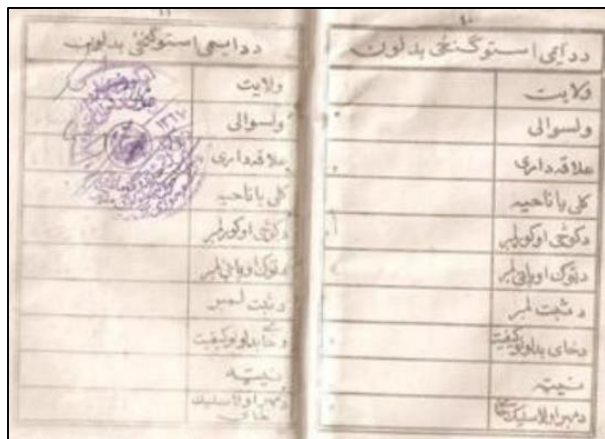 ١٠
ددایمی استوګنځی بدلون
ولایت
ولسوالی
علاقه داری
کلی یا ناحیه
دکوڅی اوکورلمبر
دټوک اوپاڼی لمبر
د ثبت لمبر
دځای بدلولوکیفیت
نیټه
دمهر اولاسلیک ځای
١١
ددایمی استوګنځی بدلون
ولایت
ولسوالی
علاقه داری
کلی یا ناحیه
دکوڅی اوکورلمبر
دټوک اوپاڼی لمبر
د ثبت لمبر
دځای بدلولوکیفیت
نیټه
دمهر اولاسلیک
ځای